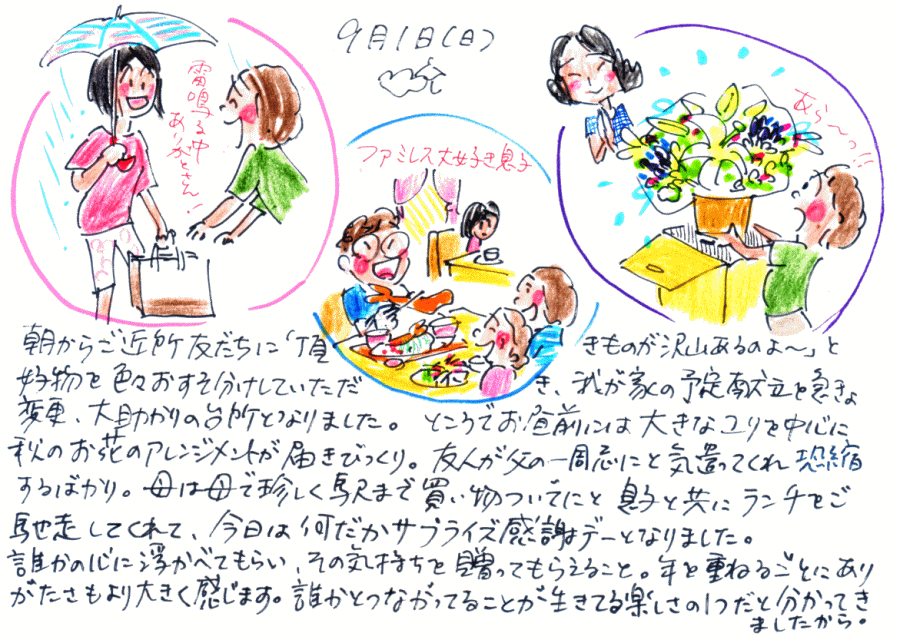 9月1日(日)
雷鳴る中
ありがとさん!
ファミレス大好き息子
あら〜っ!!
朝からご近所友だちに「頂きものが沢山あるのよ〜」と
好物を色々おすそ分けしていただき、我が家の予定献立を急きょ
変更、大助かりの台所となりました。ところでお昼前には大きなユリを中心に
秋のお花のアレンジメントが届きびっくり。友人が父の一周忌にと気遣ってくれ恐縮
するばかり。母は母で珍しく駅まで買い物ついでにと息子と共にランチをご
馳走してくれて、今日は何だかサプライズ感謝デーとなりました。
誰かの心に浮かべてもらい、その気持ちを贈ってもらえること。年を重ねるごとにあり
がたさもより大きく感じます。誰かとつながってることが生きてる楽しさの1つだと分かってき
ましたから。